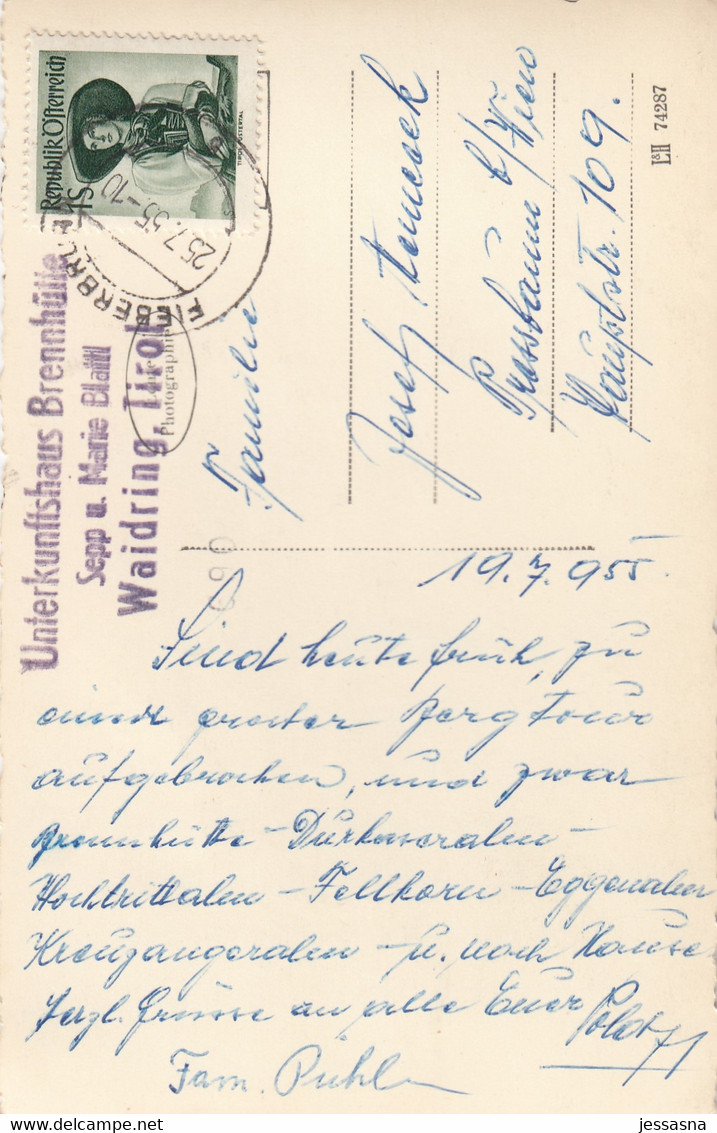 Republik Österreich
1S
TIROL, PUSTERTAL
FIEBERBRUNN
25.7.55-10
Unterkunftshaus Brennhütte
Sepp u. Marie Blattl
Waidring, Tirol
Photographie
Familie
Josef
Pressbaum b/Wien
Hauptstr. 109.
L&H 74287
19.7.955
Sind heute früh, zu
einer grosser Bergtour
aufgebrochen, und zwar
Brennhütte - Durkaseralen -
Hochtrittalen - Fellhorn - Eggenalen
Kreuzangeralen - u. nach Hause.
Herzl. Grüsse an alle Euer Poldl
Fam. Pühl
jessasna